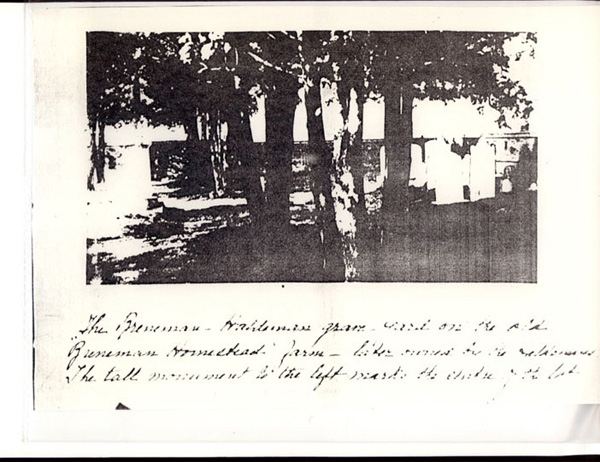 "The Breneman - Habbleman grave-yard on the old
Breneman Homestead" farm - later owned by the
The tall monument to the left marks the centre of the lot